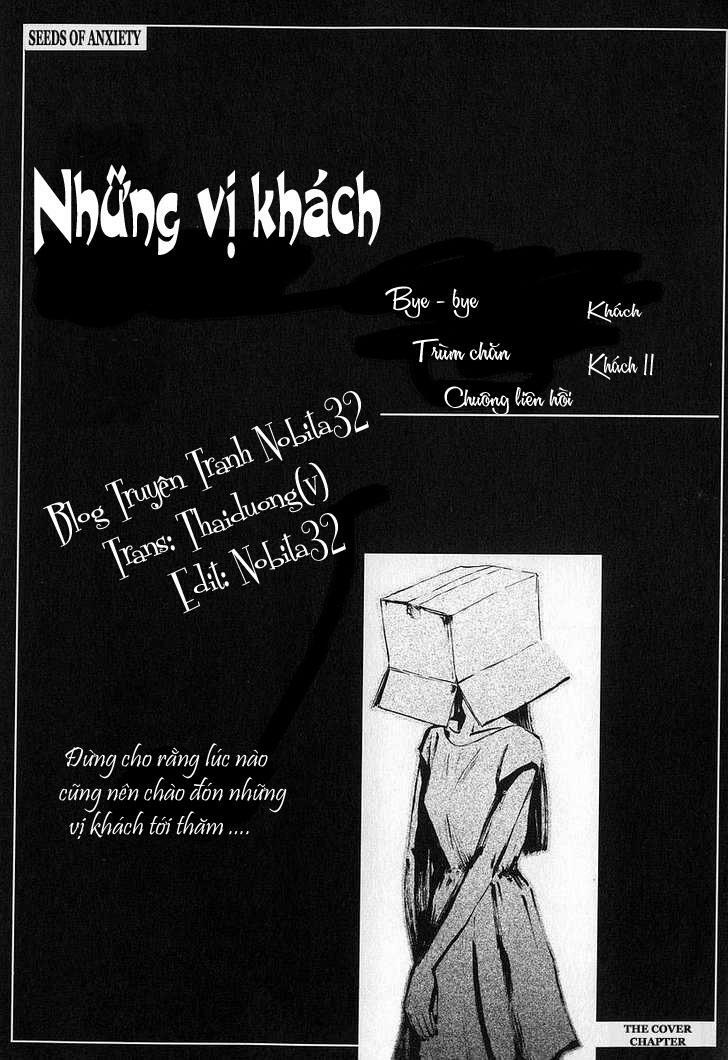 SEEDS OF ANXIETY
Những vị khách
Bye - bye
Khách
Trùm chăn
Khách II
Chuông liên hồi
Blog Truyện Tranh Nobita32
Trans: Thaiduong(v)
Edit: Nobita32
Đừng cho rằng lúc nào
cũng nên chào đón những
vị khách tới thăm ....
THE COVER
CHAPTER